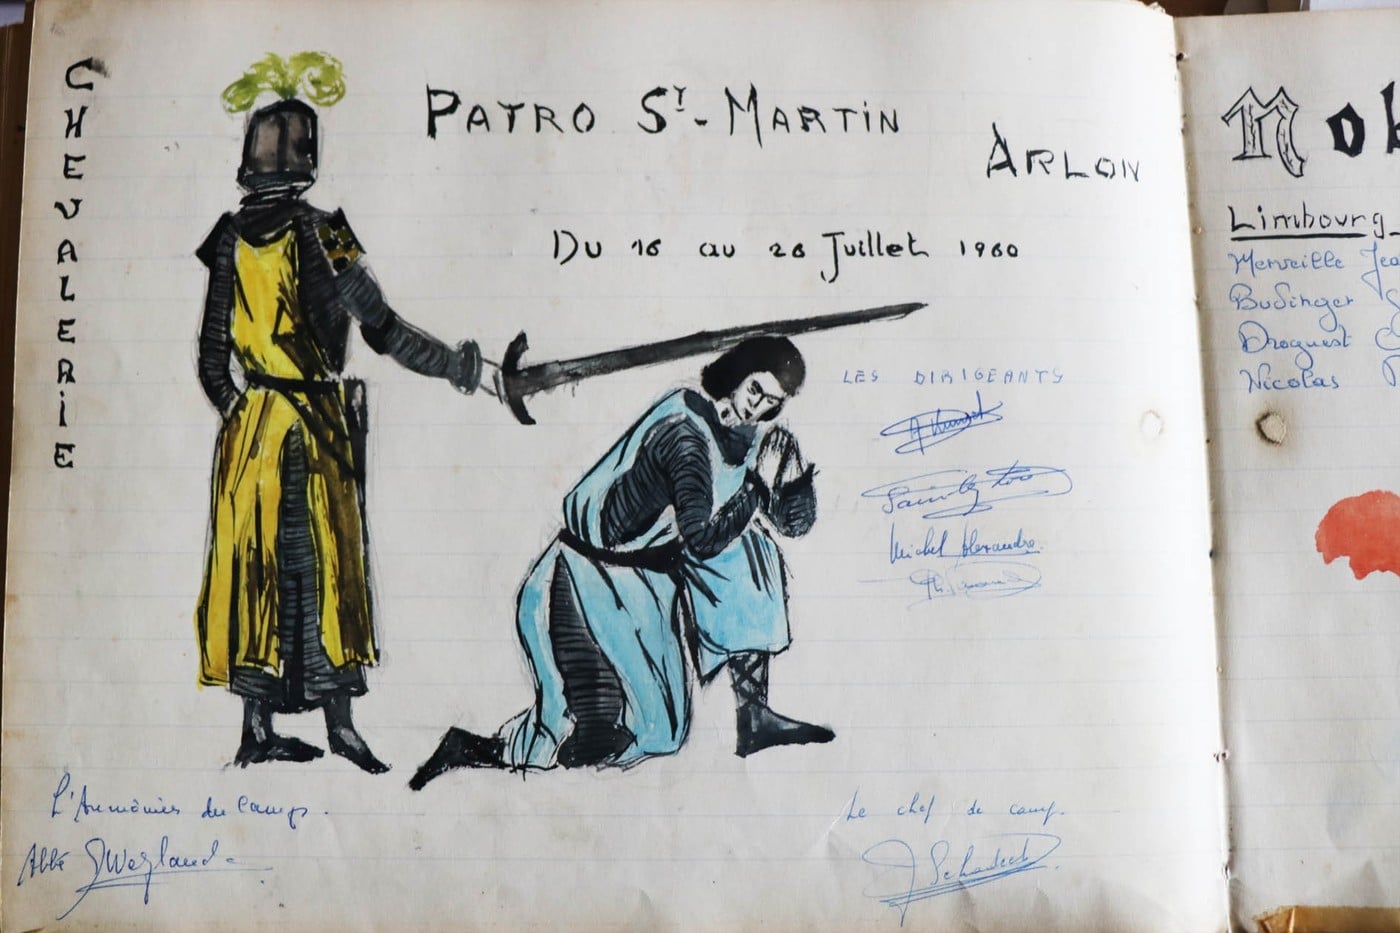 CHEVALERIE
PATRO ST-MARTIN
ARLON
Du 16 au 26 Juillet 1960
LES DIRIGEANTS
Michel Alexandre
L'Aumônier du Camp.
Abbé
Le chef de camp.
J Schadeck
Nob
Limbourg
Merveille Jea
Budinger
Droguest
Nicolas